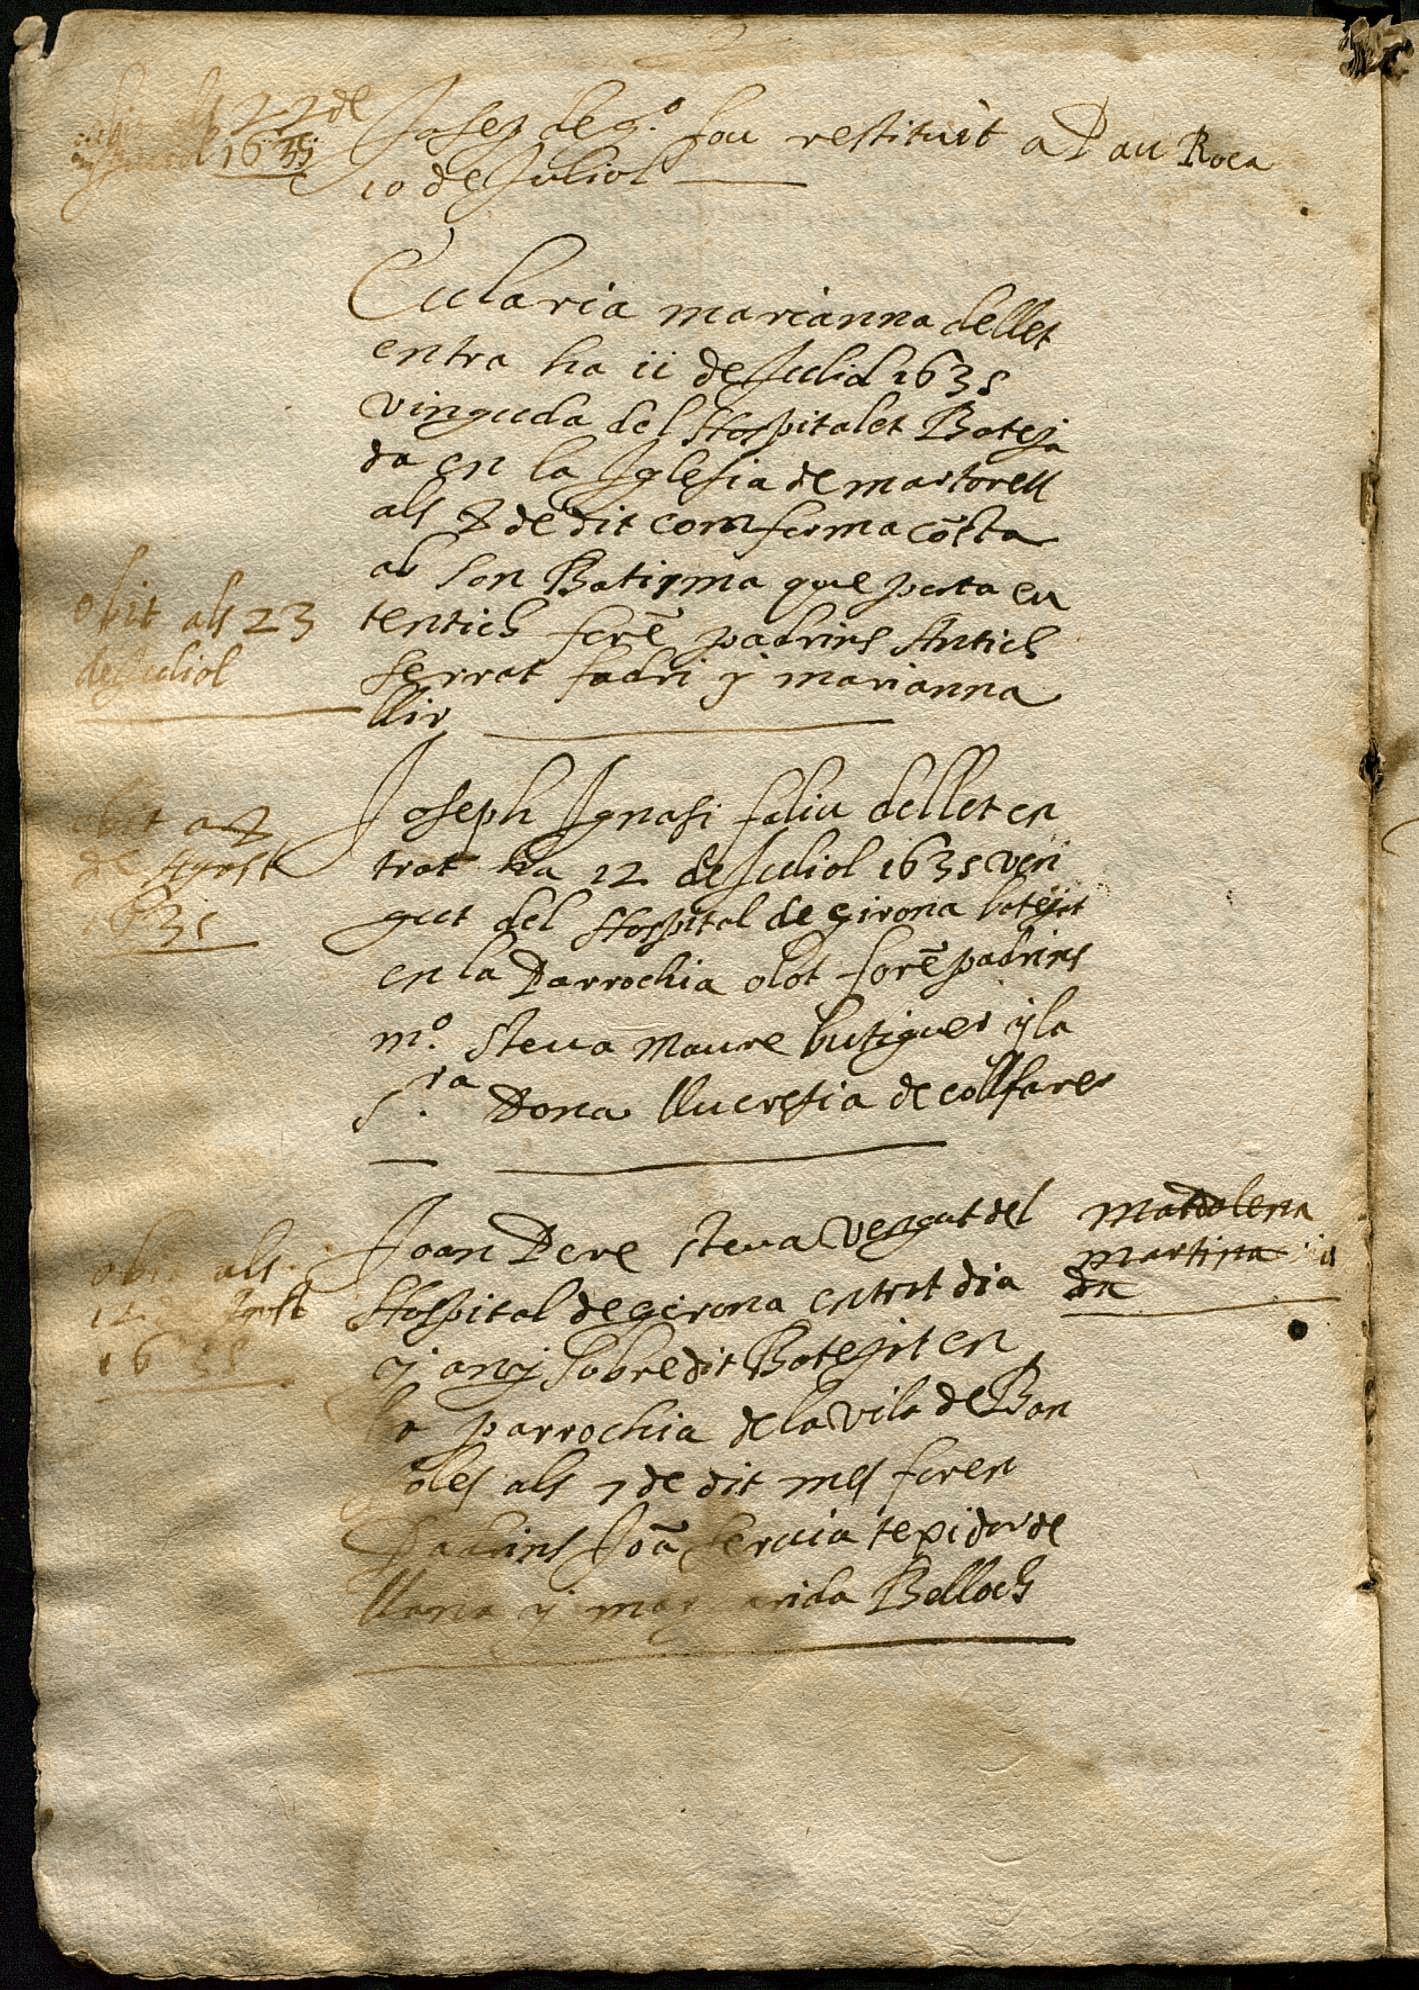 als 22 de
1635
Josep deg.º fou restituit a Pau Roca
10 de Juliol
Eularia marianna de llet
entra ha 11 de Juliol 1635
vinguda del Hospitalet Bateja
da en la Iglesia de martorell
als 7 de dit com ferma cõsta
ab son Batisma que porta eu
tentich forẽ padrins Antich
serrat fadri y marianna
llir
obit als 23
de Juliol
Joseph Ignasi feliu de llet en
trat ha 12 de Juliol 1635 ven
gut del Hospital de girona batejat
en la Parrochia olot forẽ padrins
m.º steva Maure butiguer y la
S.ra Dona llucresia de collfares
obit a 7
de Agost
1635
Joan Pere steva vengut del
Hospital de girona entrat dia
y any sobredit Batejat en
la parrochia de la vila de Ban
yoles als 7 de dit mes foren
Padrins Joã texidor de
llana y margarida Belloch
obit als
12 de Agost
1635
Madalena
martina